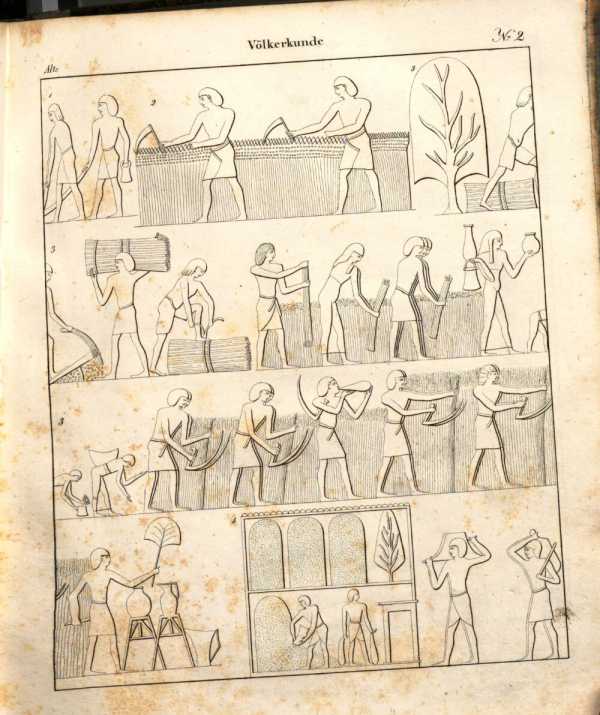 Völkerkunde
№ 2
Alte
1
2
3
3
3
4